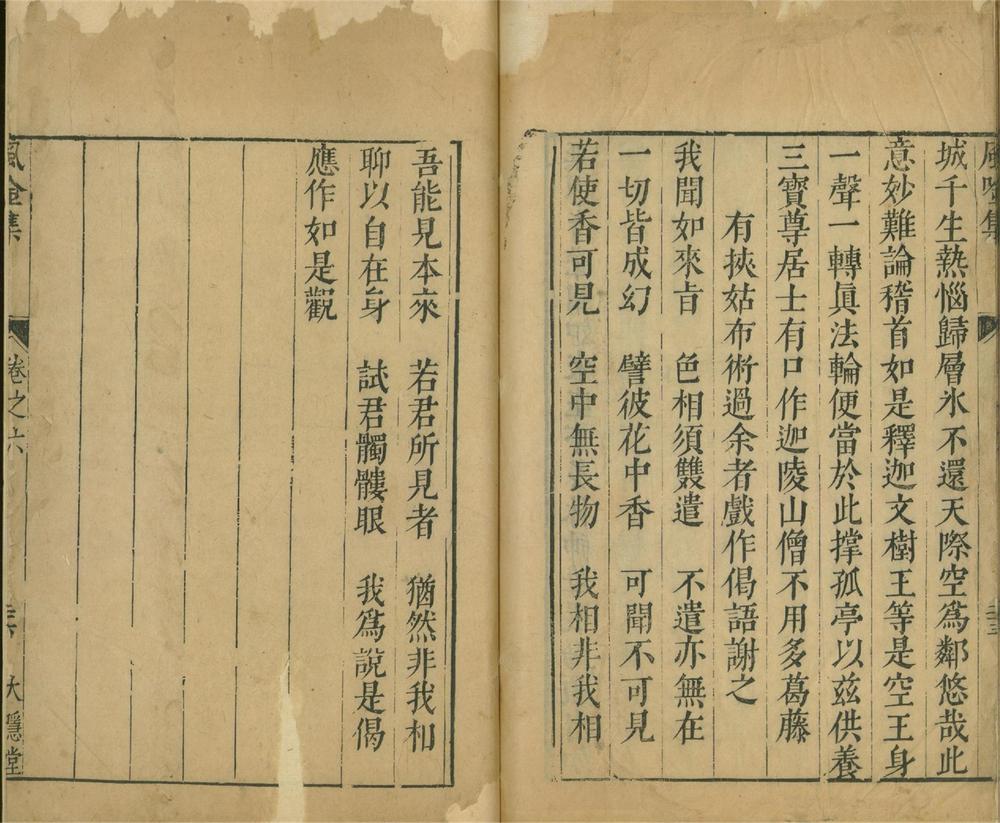 城千生熱惱歸層氷不還天際空爲鄰悠哉此
意妙難論稽首如是釋迦文樹王等是空王身
一聲一轉眞法輪便當於此撑孤亭以玆供養
三寶尊居士有口作迦陵山僧不用多葛藤
有挾姑布術過余者戲作偈語謝之
我聞如來旨 色相須雙遣 不遣亦無在
一切皆成幻 譬彼花中香 可聞不可見
若使香可見 空中無長物 我相非我相
吾能見本來 若君所見者 猶然非我相
聊以自在身 試君髑髏眼 我爲說是偈
應作如是觀
卷之六
大隱堂